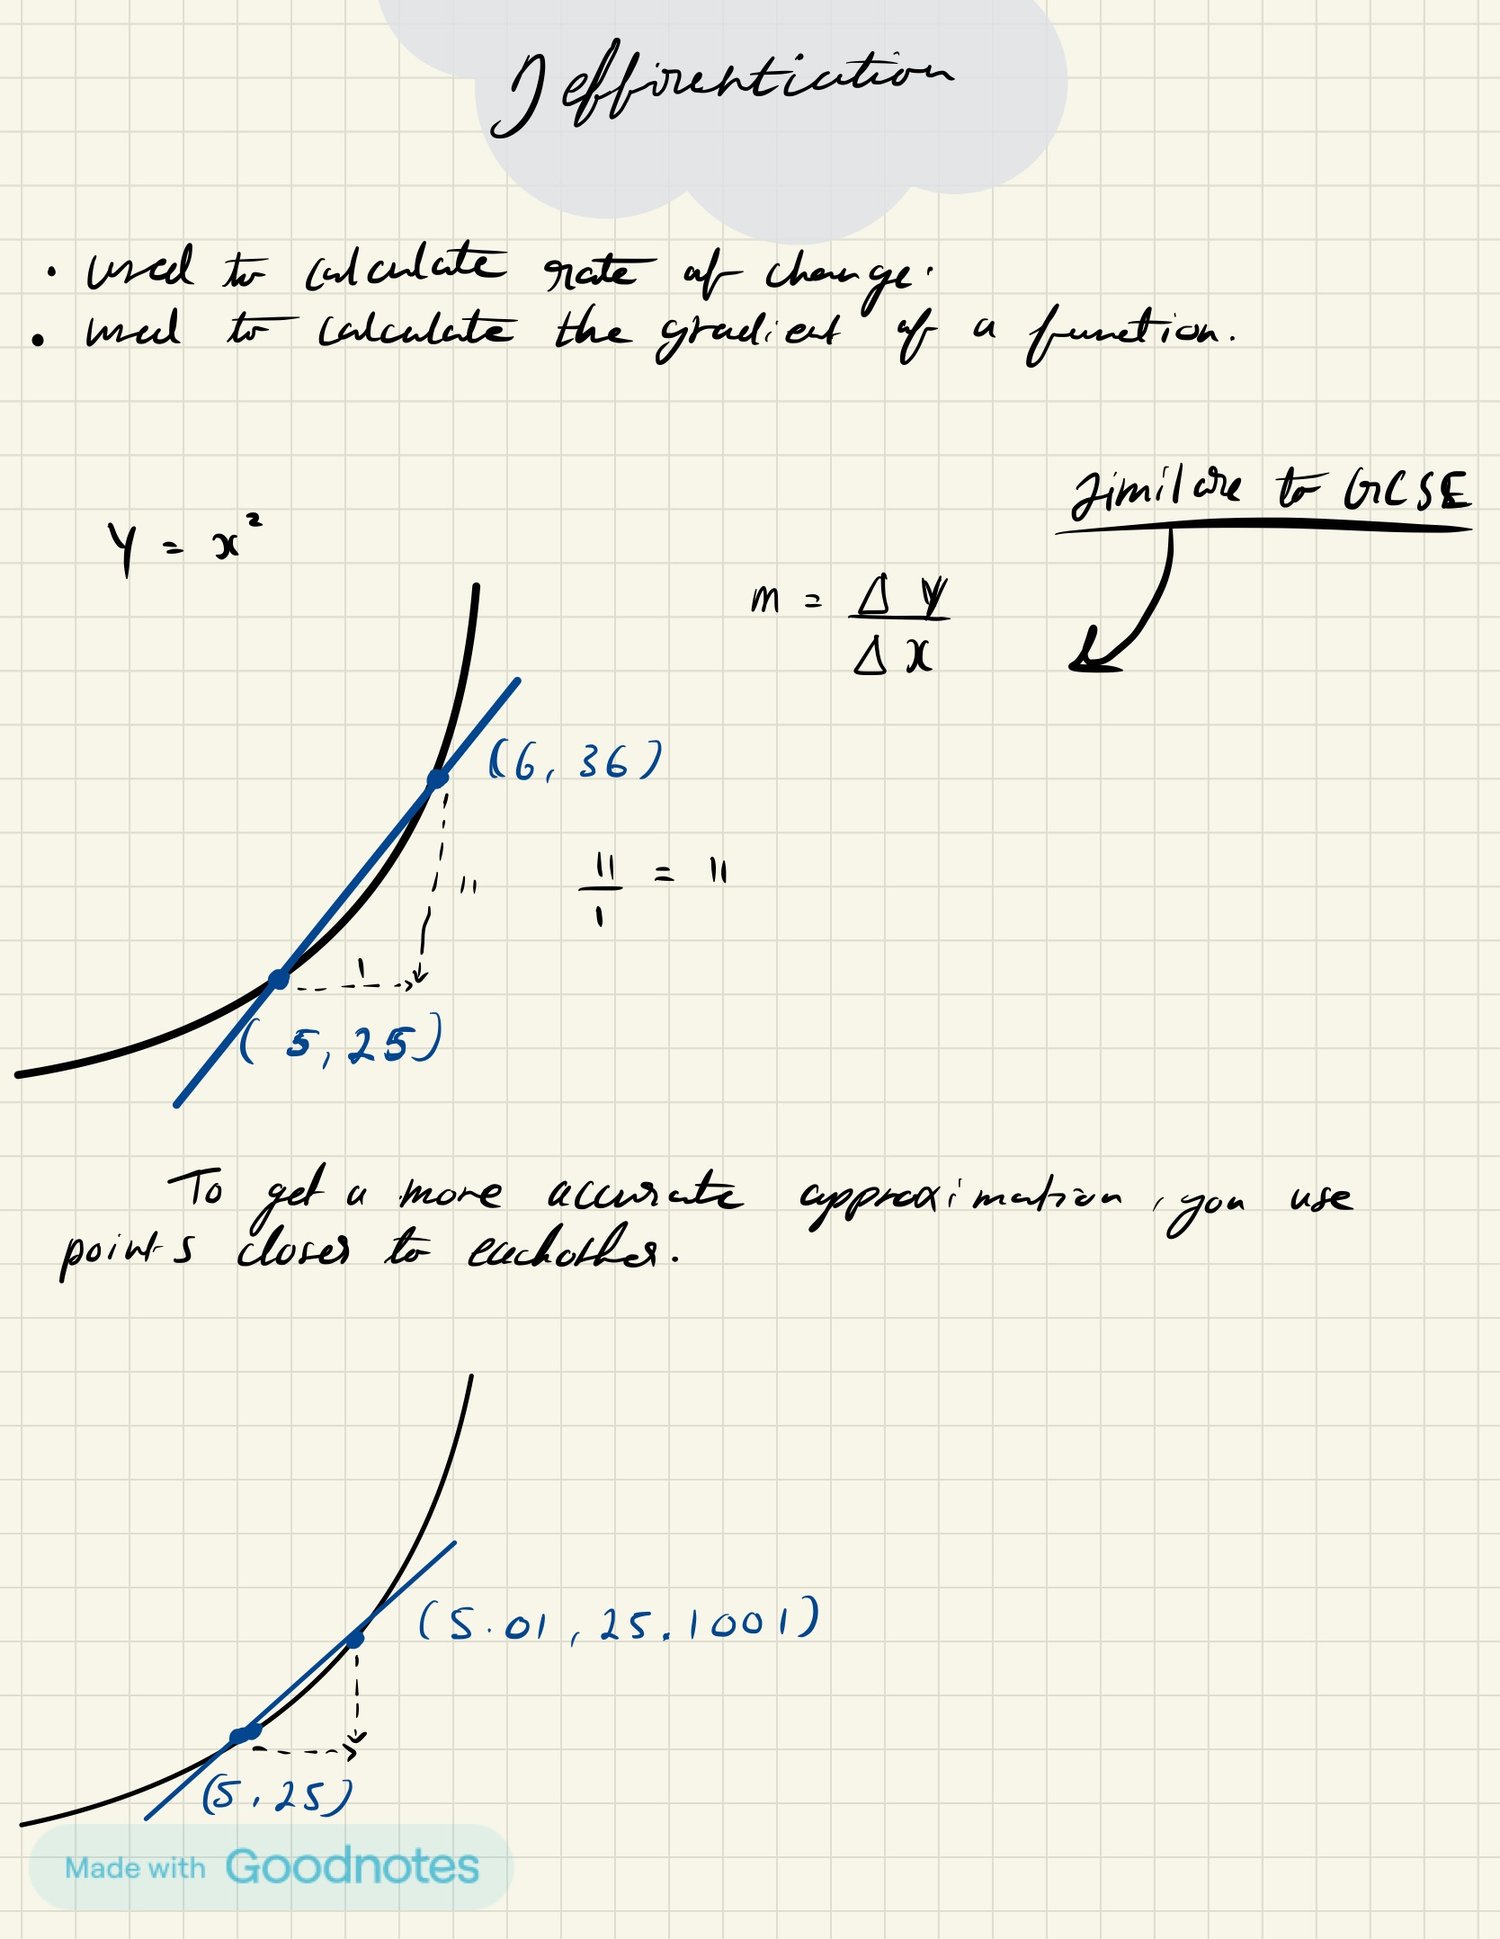 Deffirentiation
• used to calculate rate of change.
• used to calculate the gradient of a function.
Similare to GCSE
Y = x²
m = Δy
Δx
(6, 36)
11
11/1 = 11
1
(5, 25)
To get a more accurate approximation, you use
points closer to eachother.
(5.01, 25.1001)
(5, 25)
Made with Goodnotes